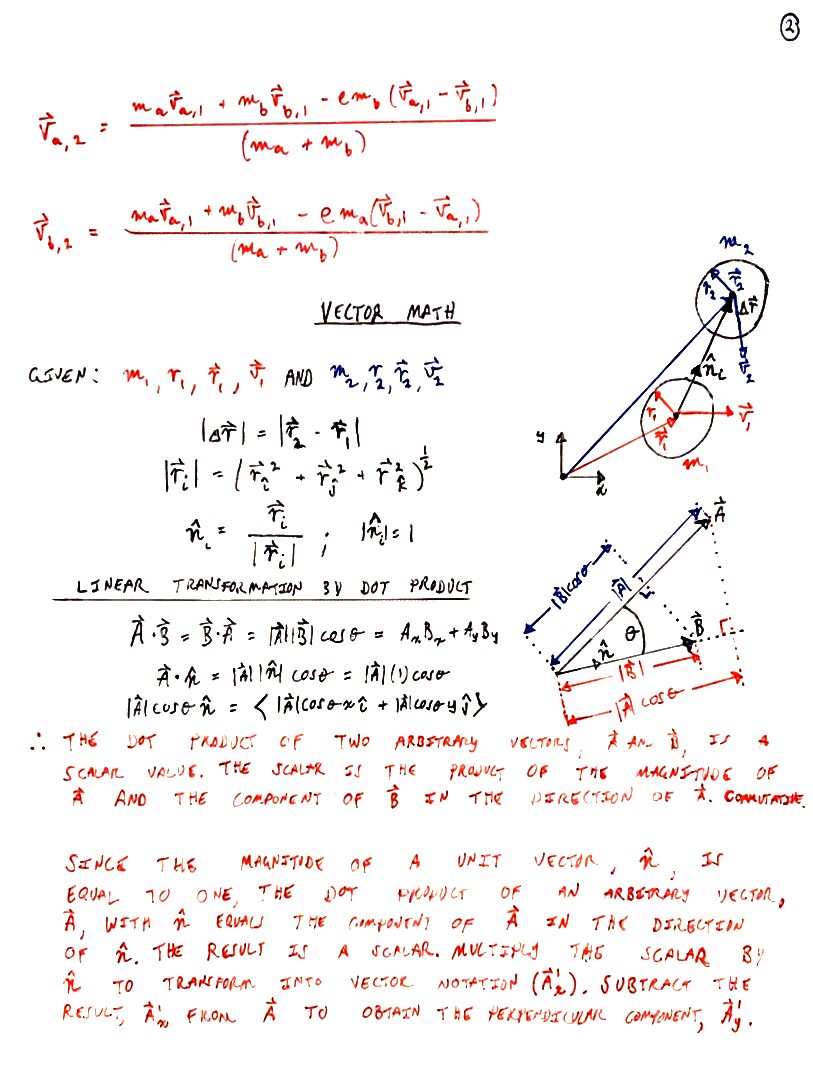 ②
v⃗a,2 = (ma v⃗a,1 + mb v⃗b,1 - e mb (v⃗a,1 - v⃗b,1)) / (ma + mb)
v⃗b,2 = (ma v⃗a,1 + mb v⃗b,1 - e ma (v⃗b,1 - v⃗a,1)) / (ma + mb)
VECTOR MATH
GIVEN: m1, r1, r⃗1, v⃗1 AND m2, r2, r⃗2, v⃗2
|Δr⃗| = |r⃗2 - r⃗1|
|r⃗i| = (r⃗î² + r⃗ĵ² + r⃗k̂²)^½
n̂i = r⃗i / |r⃗i| ; |n̂i| = 1
m2
r2
r⃗2
Δr⃗
v⃗2
n̂i
r1
r⃗1
v⃗1
m1
y
x
LINEAR TRANSFORMATION BY DOT PRODUCT
A⃗ · B⃗ = B⃗ · A⃗ = |A⃗||B⃗| cosθ = AxBx + AyBy
A⃗ · n̂ = |A⃗||n̂| cosθ = |A⃗|(1)cosθ
|A|cosθ n̂ = < |A|cosθ x î + |A|cosθ y ĵ >
A⃗
|B⃗|cosθ
|A⃗|
θ
B⃗
n̂
|B⃗|
|A⃗| cosθ
∴ THE DOT PRODUCT OF TWO ARBITRARY VECTORS, A⃗ AND B⃗, IS A
SCALAR VALUE. THE SCALAR IS THE PRODUCT OF THE MAGNITUDE OF
A⃗ AND THE COMPONENT OF B⃗ IN THE DIRECTION OF A⃗. COMMUTATIVE.
SINCE THE MAGNITUDE OF A UNIT VECTOR, n̂, IS
EQUAL TO ONE, THE DOT PRODUCT OF AN ARBITRARY VECTOR,
A⃗, WITH n̂ EQUALS THE COMPONENT OF A⃗ IN THE DIRECTION
OF n̂. THE RESULT IS A SCALAR. MULTIPLY THE SCALAR BY
n̂ TO TRANSFORM INTO VECTOR NOTATION (A⃗'x). SUBTRACT THE
RESULT, A⃗'x FROM A⃗ TO OBTAIN THE PERPENDICULAR COMPONENT, A⃗'y.